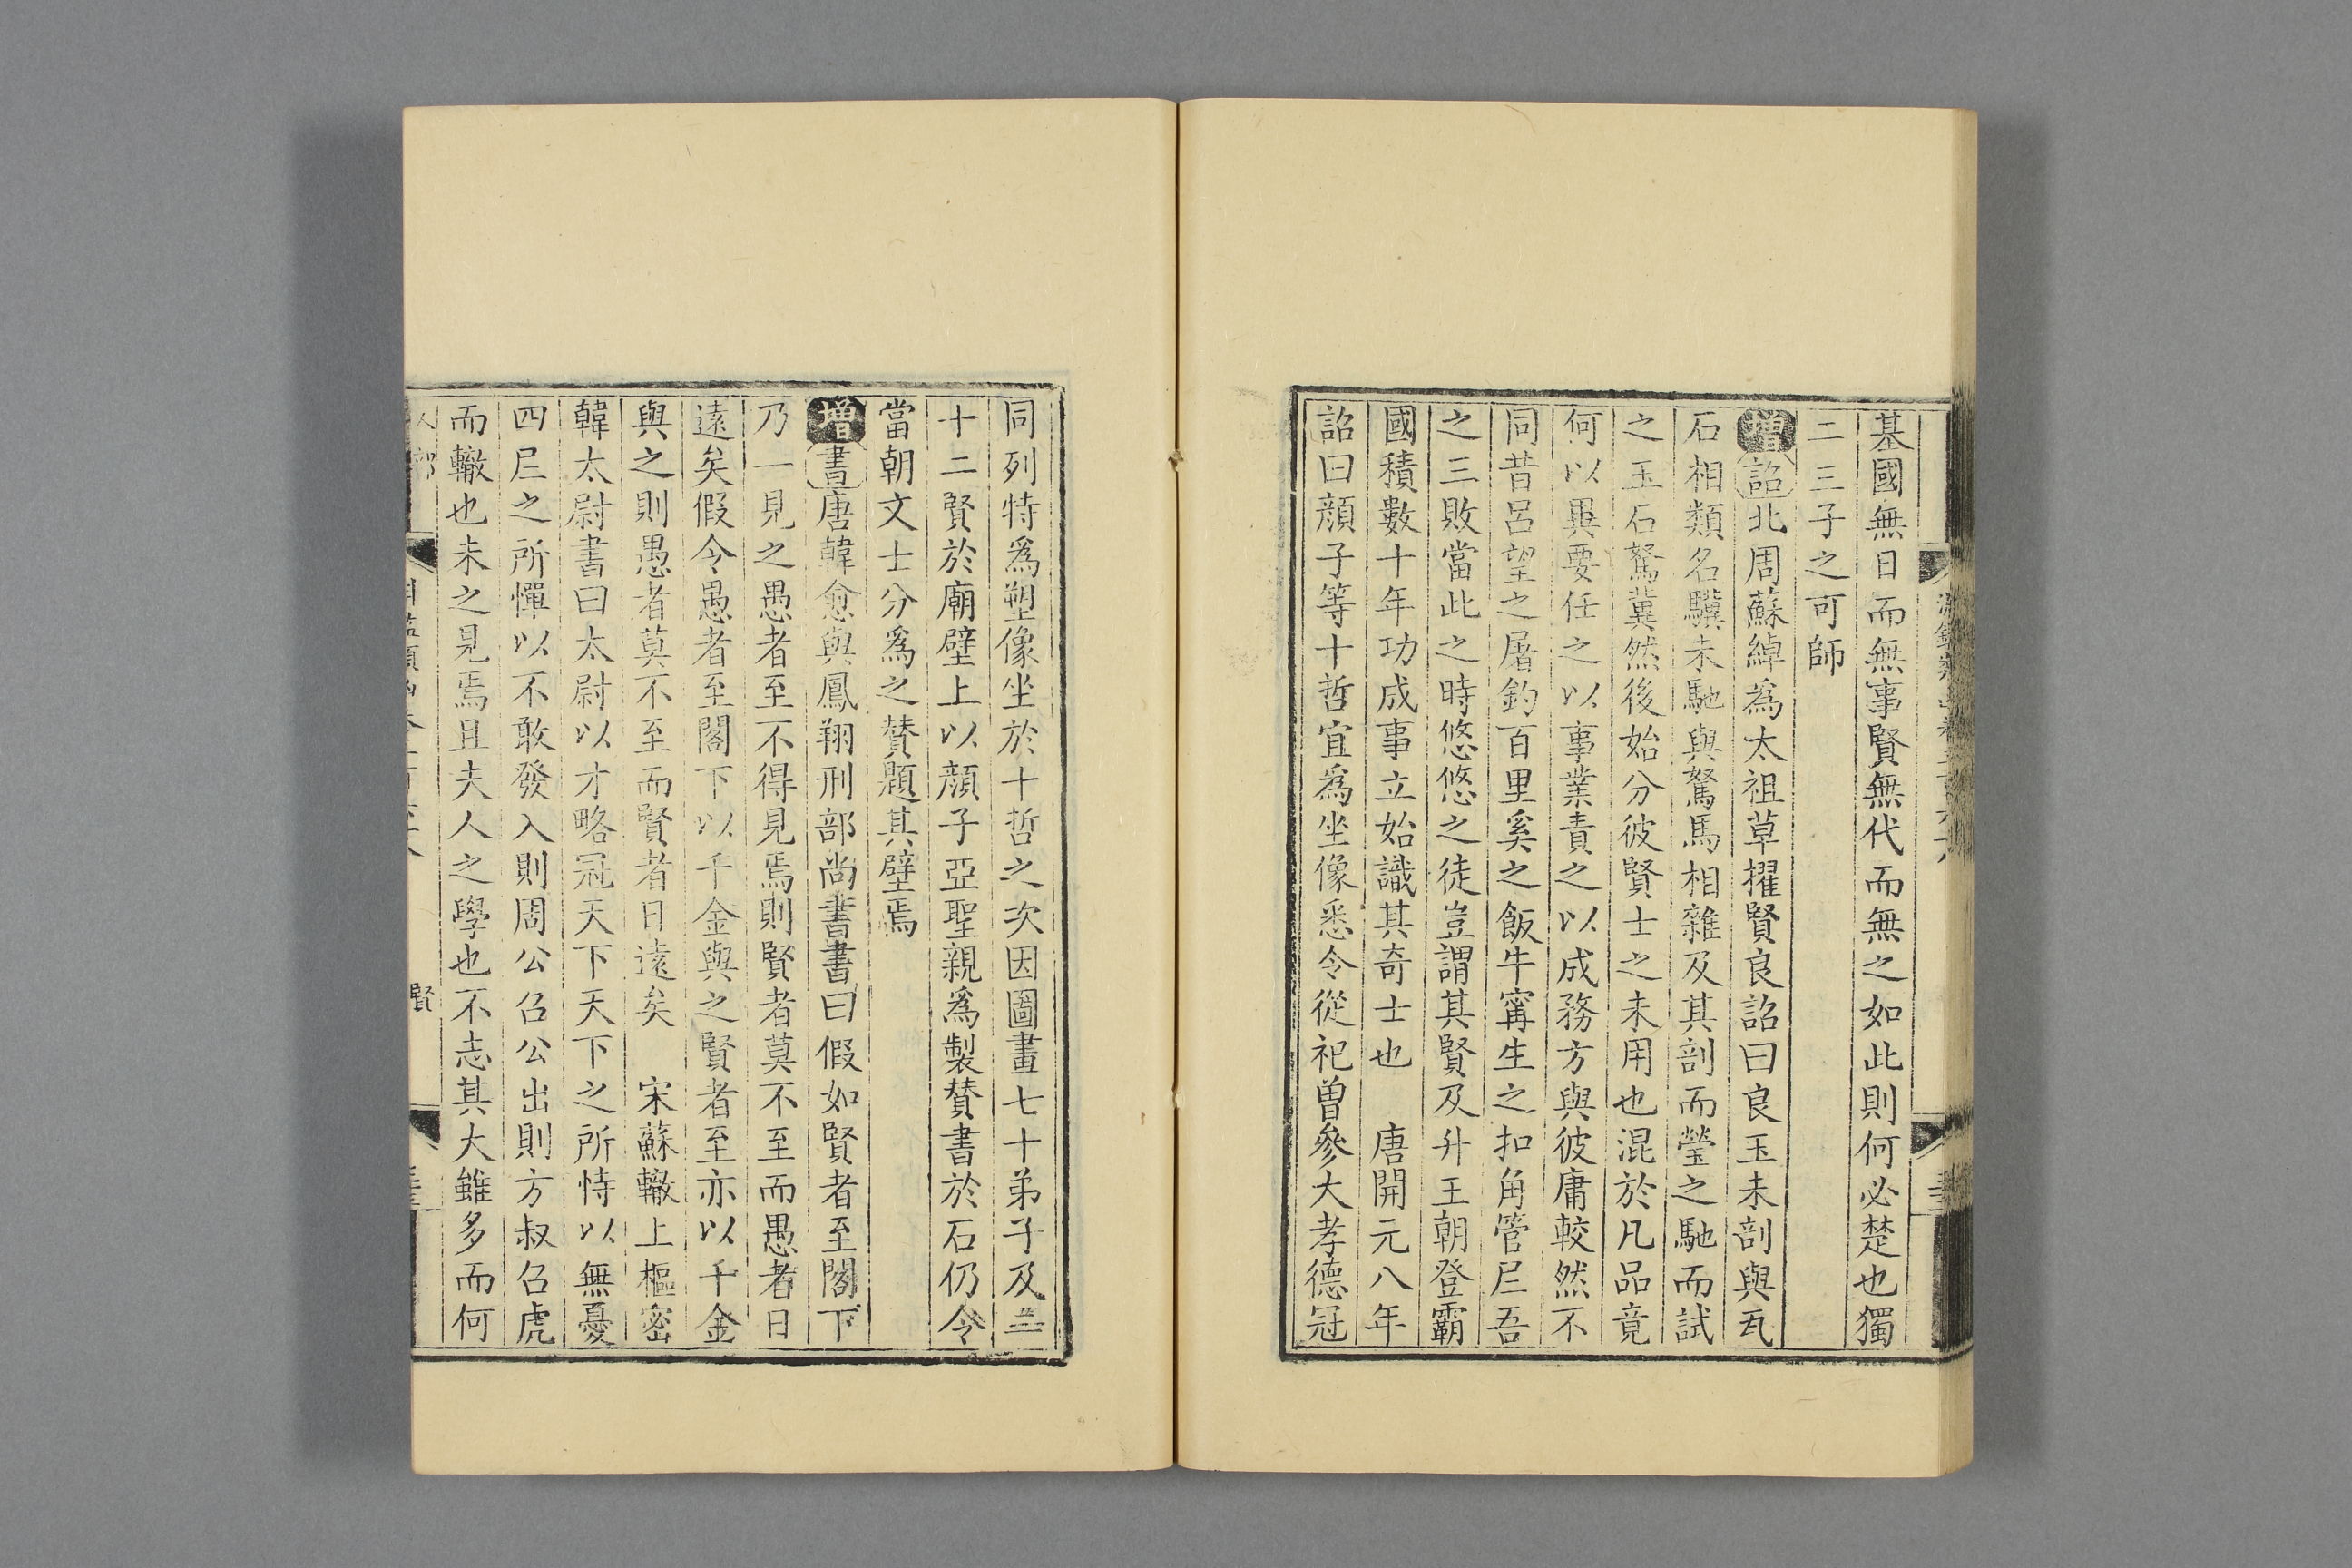 基國無日而無事賢無代而無之如此則何必楚也獨
二三子之可師
增詔北周蘇綽為太祖草擢賢良詔曰良玉未剖與瓦
石相類名驥未馳與駑馬相雜及其剖而瑩之馳而試
之玉石駑驥然後始分彼賢士之未用也混於凡品竟
何以異要任之以事業責之以成務方與彼庸較然不
同昔呂望之屠釣百里奚之飯牛甯生之扣角管尼吾
之三敗當此之時悠悠之徒豈謂其賢及升王朝登霸
國積數十年功成事立始識其奇士也　唐開元八年
詔曰顏子等十哲宜為坐像悉令從祀曾參大孝德冠
同列特爲塑像坐於十哲之次因圖畫七十弟子及二
十二賢於廟壁上以顏子亞聖親爲製贊書於石仍令
當朝文士分爲之贊題其壁焉
增書唐韓愈與鳳翔刑部尚書書曰假如賢者至閣下
乃一見之愚者至不得見焉則賢者莫不至而愚者日
遠矣假令愚者至閣下以千金與之賢者至亦以千金
與之則愚者莫不至而賢者日遠矣　宋蘇轍上樞密
韓太尉書曰太尉以才略冠天下天下之所恃以無憂
四尼之所憚以不敢發入則周公召公出則方叔召虎
而轍也未之見焉且夫人之學也不志其大雖多而何
賢